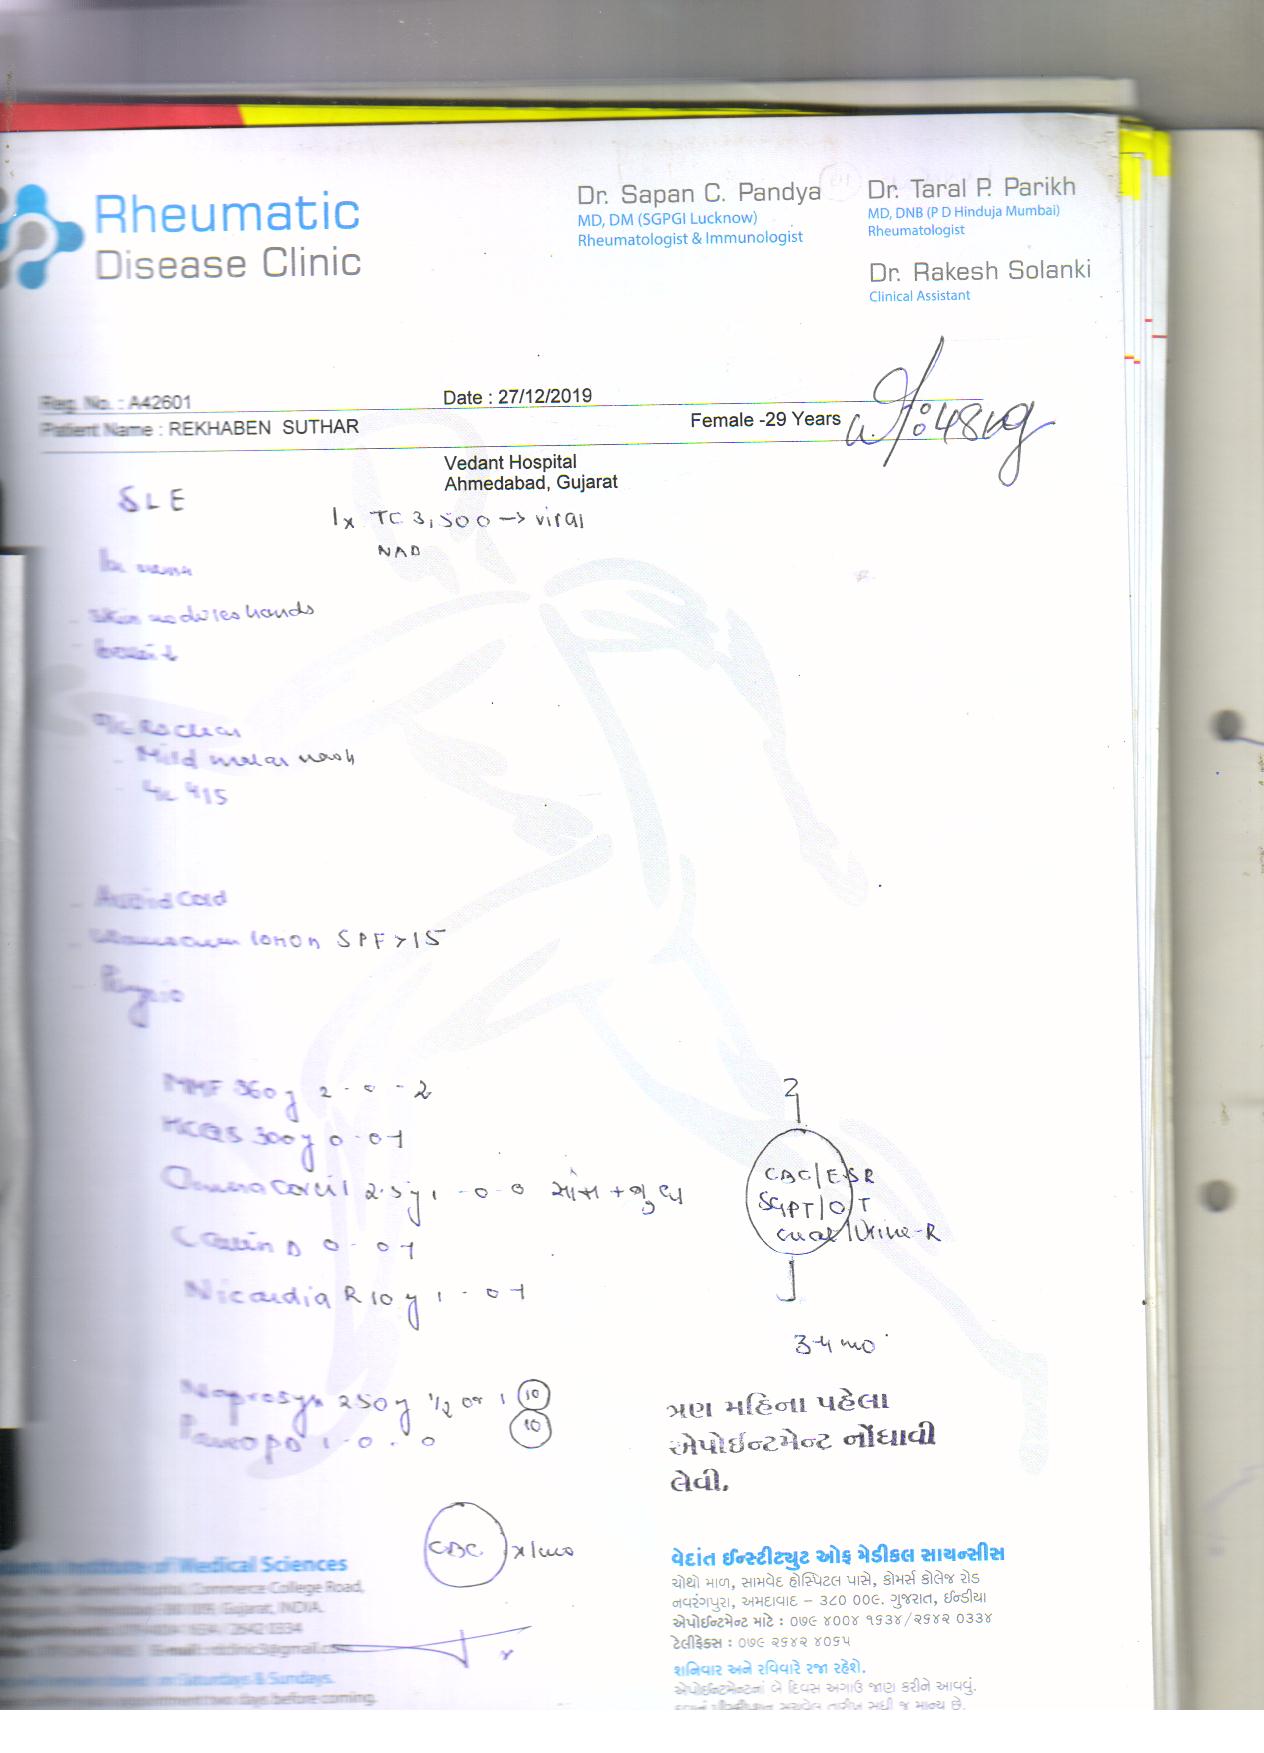 Rheumatic
Disease Clinic
Dr. Sapan C. Pandya
MD, DM (SGPGI Lucknow)
Rheumatologist & Immunologist
Dr. Taral P. Parikh
MD, DNB (P D Hinduja Mumbai)
Rheumatologist
Dr. Rakesh Solanki
Clinical Assistant
Reg. No. : A42601
Date : 27/12/2019
Patient Name : REKHABEN SUTHAR
Female -29 Years
48kg
Vedant Hospital
Ahmedabad, Gujarat
SLE
Ix TC 3,500 → viral
NAD
- skin nodules hands
RS clear
- Mild malar rash
- Avoid cold
lotion SPF > 15
- Physio
MMF 360 2 - 0 - 2
HCQS 300 0 - 0 1
Omnacortil 2.5 1 - 0 - 0
D 0 - 0 1
Nicardia R 10 1 - 0 1
Naprosyn 250 1/2 or 1 10
1 - 0 - 0 10
2
CBC/ESR
SGPT/OT
creat/Urine-R
3-4 mo
ત્રણ મહિના પહેલા
એપોઈન્ટમેન્ટ નોંધાવી
લેવી.
CBC x 1mo
Institute of Medical Sciences
College Road,
Gujarat, INDIA.
on Saturdays & Sundays.
appointment two days before coming.
વેદાંત ઈન્સ્ટીટ્યુટ ઓફ મેડીકલ સાયન્સીસ
ચોથો માળ, સામવેદ હોસ્પિટલ પાસે, કોમર્સ કોલેજ રોડ
નવરંગપુરા, અમદાવાદ – ૩૮૦ ૦૦૯. ગુજરાત, ઈન્ડીયા
એપોઈન્ટમેન્ટ માટે : ૦૭૯ ૪૦૦૪ ૧૬૩૪/૨૬૪૨ ૦૩૩૪
ટેલીફેક્સ : ૦૭૯ ૨૬૪૨ ૪૦૬૫
શનિવાર અને રવિવારે રજા રહેશે.
એપોઈન્ટમેન્ટનાં બે દિવસ અગાઉ જાણ કરીને આવવું.